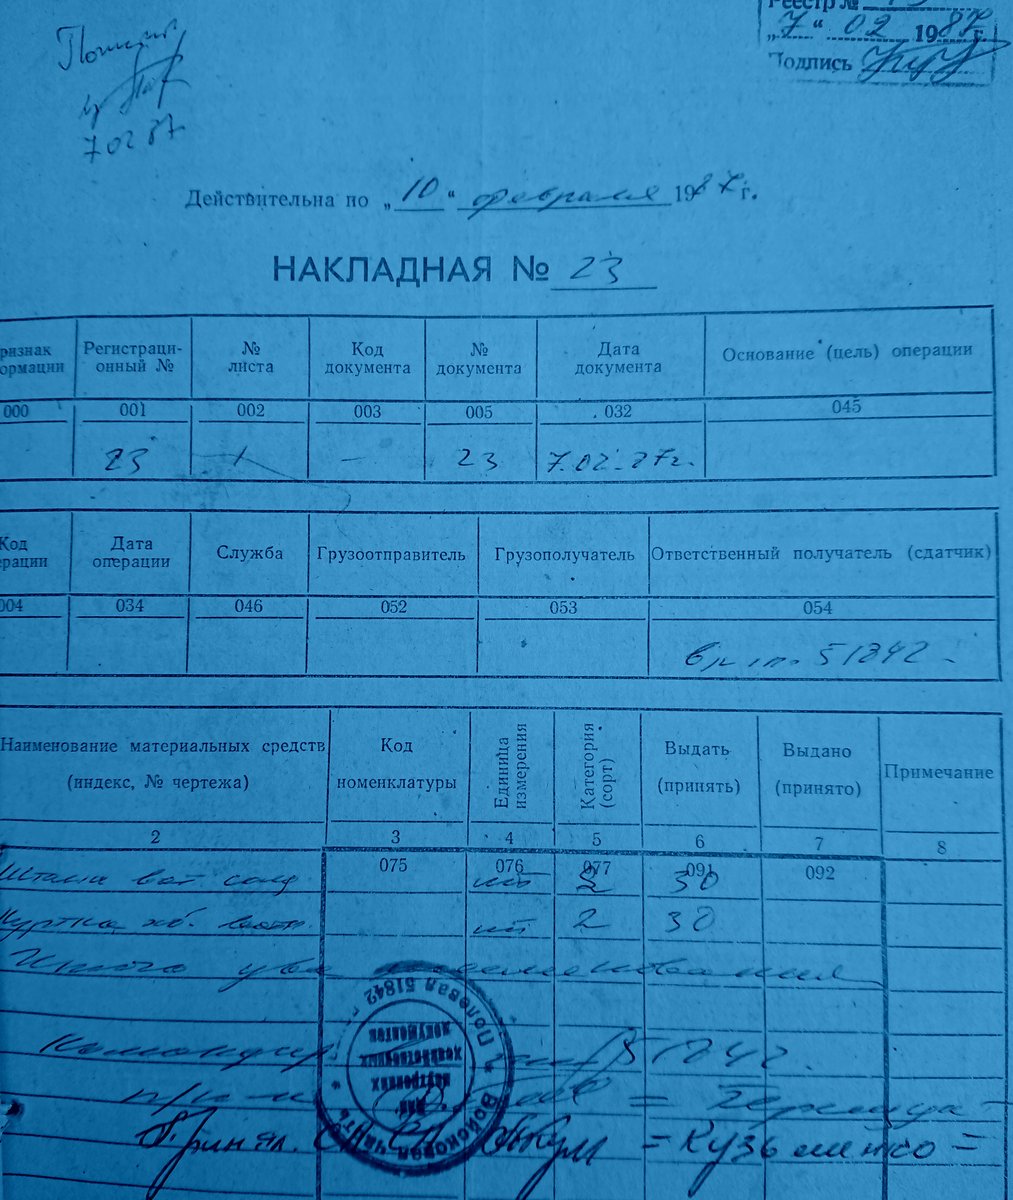 Реестр №
„7“ 02 1987 г.
Подпись
7 02 87
Действительна по „10“ февраля 1987 г.
НАКЛАДНАЯ № 23
ризнак ормации Регистраци-онный № № листа Код документа № документа Дата документа Основание (цель) операции
000 001 002 003 005 032 045
23 1 — 23 7.02.87г.
Код ерации Дата операции Служба Грузоотправитель Грузополучатель Ответственный получатель (сдатчик)
004 034 046 052 053 054
51842
Наименование материальных средств (индекс, № чертежа) Код номенклатуры Единица измерения Категория (сорт) Выдать (принять) Выдано (принято) Примечание
2 3 4 5 6 7 8
075 076 077 091 092
Штаны ват солд шт 2 30
Куртка хб. ватн. шт 2 30
Итого два наименования
Командир 51842
п/п-к = Терлица =
Принял. = Кузьменко =
Войсковая часть Полевая 51842
Для внутренних хозяйственных документов